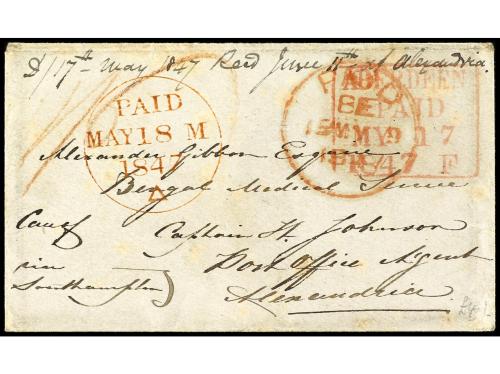 D/ 17th May 1847 Recd June 11th at Alexandria.
PAID
MAY 18 M
1847
PAID
ABERDEEN
PAID
MY 17
1847 F
Alexander Gibbon Esquire
Bengal Medical Service
Care of
Captain H. Johnson
via
Post Office Agent
Southampton
Alexandria